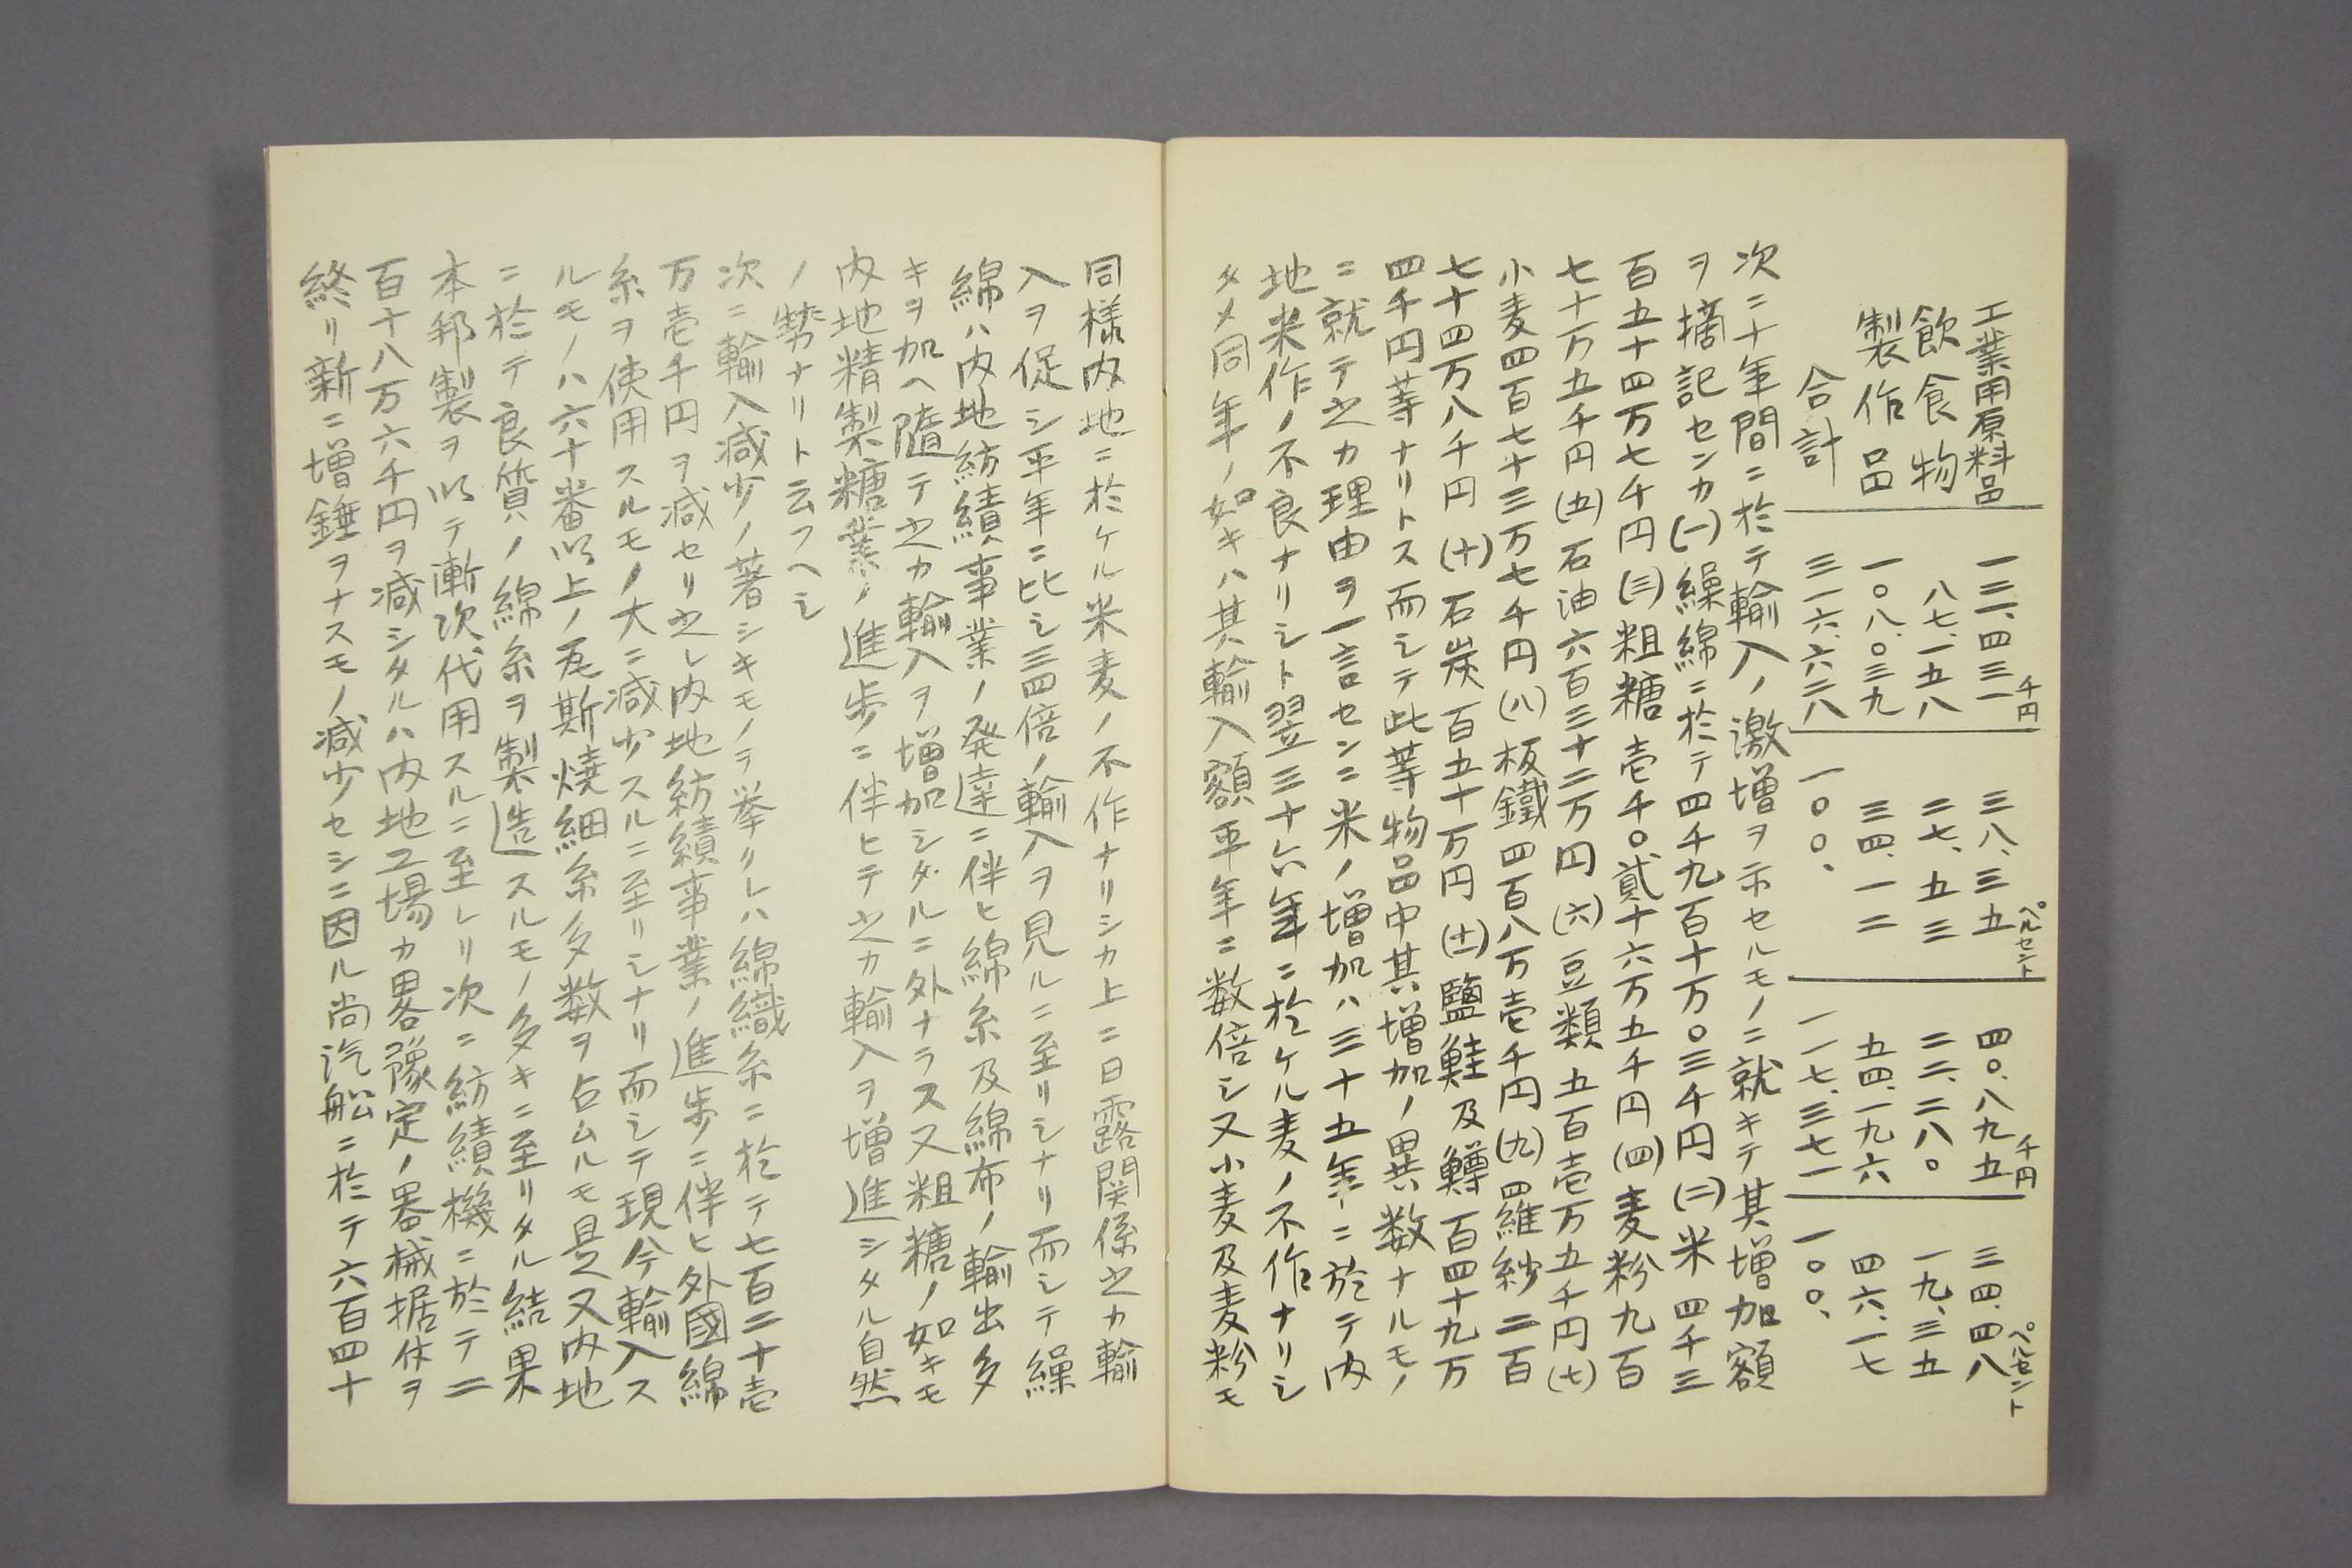 工業用原料品 一二一、四三一千円 三八、三五ペルセント 四〇、八九五千円 三四、四八ペルセント
飲食物 八七、一五八 二七、五三 二二、二八〇 一九、三五
製作品 一〇八、〇三九 三四、一二 五四、一九六 四六、一七
合計 三一六、六二八 一〇〇、 一一七、三七一 一〇〇、
次ニ十年間ニ於テ輸入ノ激増ヲ示セルモノニ就キテ其増加額
ヲ摘記センカ(一)繰綿ニ於テ四千九百十万〇三千円(二)米四千三
百五十四万七千円(三)粗糖壱千〇貳十六万五千円(四)麦粉九百
七十万五千円(五)石油六百三十二万円(六)豆類五百壱万五千円(七)
小麦四百七十三万七千円(八)板鐵四百八万壱千円(九)四羅紗二百
七十四万八千円(十)石炭百五十万円(十一)鹽鮭及鱒百四十九万
四千円等ナリトス而シテ此等物品中其増加ノ異数ナルモノ
ニ就テ之カ理由ヲ一言センニ米ノ増加ハ三十五年ニ於テ内
地米作ノ不良ナリシト翌三十六年ニ於ケル麦ノ不作ナリシ
タメ同年ノ如キハ其輸入額平年ニ数倍シ又小麦及麦粉モ
同様内地ニ於ケル米麦ノ不作ナリシカ上ニ日露関係之カ輸
入ヲ促シ平年ニ比シ三四倍ノ輸入ヲ見ルニ至リシナリ而シテ繰
綿ハ内地紡績事業ノ発達ニ伴ヒ綿糸及綿布ノ輸出多
キヲ加ヘ隨テ之カ輸入ヲ増加シタルニ外ナラス又粗糖ノ如キモ
内地精製糖業ノ進歩ニ伴ヒテ之カ輸入ヲ増進シタル自然
ノ勢ナリト云フヘシ
次ニ輸入減少ノ著シキモノヲ挙リレハ綿織糸ニ於テ七百二十壱
万壱千円ヲ減セリ之レ内地紡績事業ノ進歩ニ伴ヒ外國綿
糸ヲ使用スルモノ大ニ減少スルニ至リシナリ而シテ現今輸入ス
ルモノハ六十番以上ノ瓦斯燒細糸多数ヲ占ムルモ是又内地
ニ於テ良質ノ綿糸ヲ製造スルモノ多キニ至リタル結果
本邦製ヲ以テ漸次代用スルニ至レリ次ニ紡績機ニ於テ二
百十八万六千円ヲ減シタルハ内地工場カ畧豫定ノ器械据付ヲ
終リ新ニ増錘ヲナスモノ減少セシニ因ル尚汽船ニ於テ六百四十